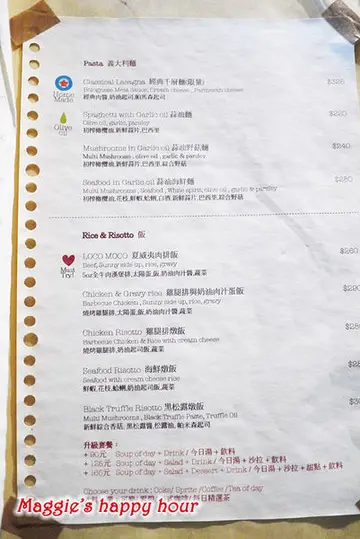 Pasta 義大利麵
Classical Lasagna 經典千層麵(限量) $328
Bolognese Meat Sauce, Cream cheese, Parmesan cheese
經典肉醬,奶油起司,帕馬森起司
Home Made
Spaghetti with Garlic oil 蒜油麵 $220
Olive oil, garlic, parsley
初榨橄欖油,新鮮蒜片,巴西里
Olive oil
Mushrooms in Garlic oil 蒜油野菇麵 $240
Multi Mushrooms, olive oil, garlic & parsley
初榨橄欖油,新鮮蒜片,巴西里,綜合野菇
Seafood in Garlic oil 蒜油海鮮麵 $280
Multi Mushrooms, Seafood, White wine, olive oil, garlic & parsley
初榨橄欖油,花枝,鮮蝦,蛤蜊,白酒,新鮮蒜片,巴西里,綜合野菇
Rice & Risotto 飯
LOCO MOCO 夏威夷肉排飯 $260
Beef, Sunny side up, rice, gravy
5oz全牛肉漢堡排,太陽蛋,飯,奶油肉汁醬,蔬菜
Must Try!
Chicken & Gravy rice 雞腿排與奶油肉汁蛋飯
Barbecue Chicken, Sunny side up, rice, gravy
燒烤雞腿排,太陽蛋,飯,奶油肉汁醬,蔬菜
Chicken Risotto 雞腿排燉飯
Barbecue Chicken & Rice with cream cheese
燒烤雞腿排,奶油起司飯,蔬菜
Seafood Risotto 海鮮燉飯
Seafood with cream cheese rice
鮮蝦,花枝,蛤蜊,奶油起司飯,蔬菜
Black Truffle Risotto 黑松露燉飯
Multi Mushrooms, Black Truffle Paste, Truffle Oil
新鮮綜合香菇,黑松露醬,松露油,帕米森起司
升級套餐:
+90元 Soup of day + Drink / 今日湯 + 飲料
+125元 Soup of day + Salad + Drink / 今日湯 + 沙拉 + 飲料
+165元 Soup of day + Salad + Dessert + Drink / 今日湯 + 沙拉 + 甜點 + 飲料
Choose your drink: Coke / Sprite / Coffee / Tea of day
每日精選茶
Maggie's happy hour